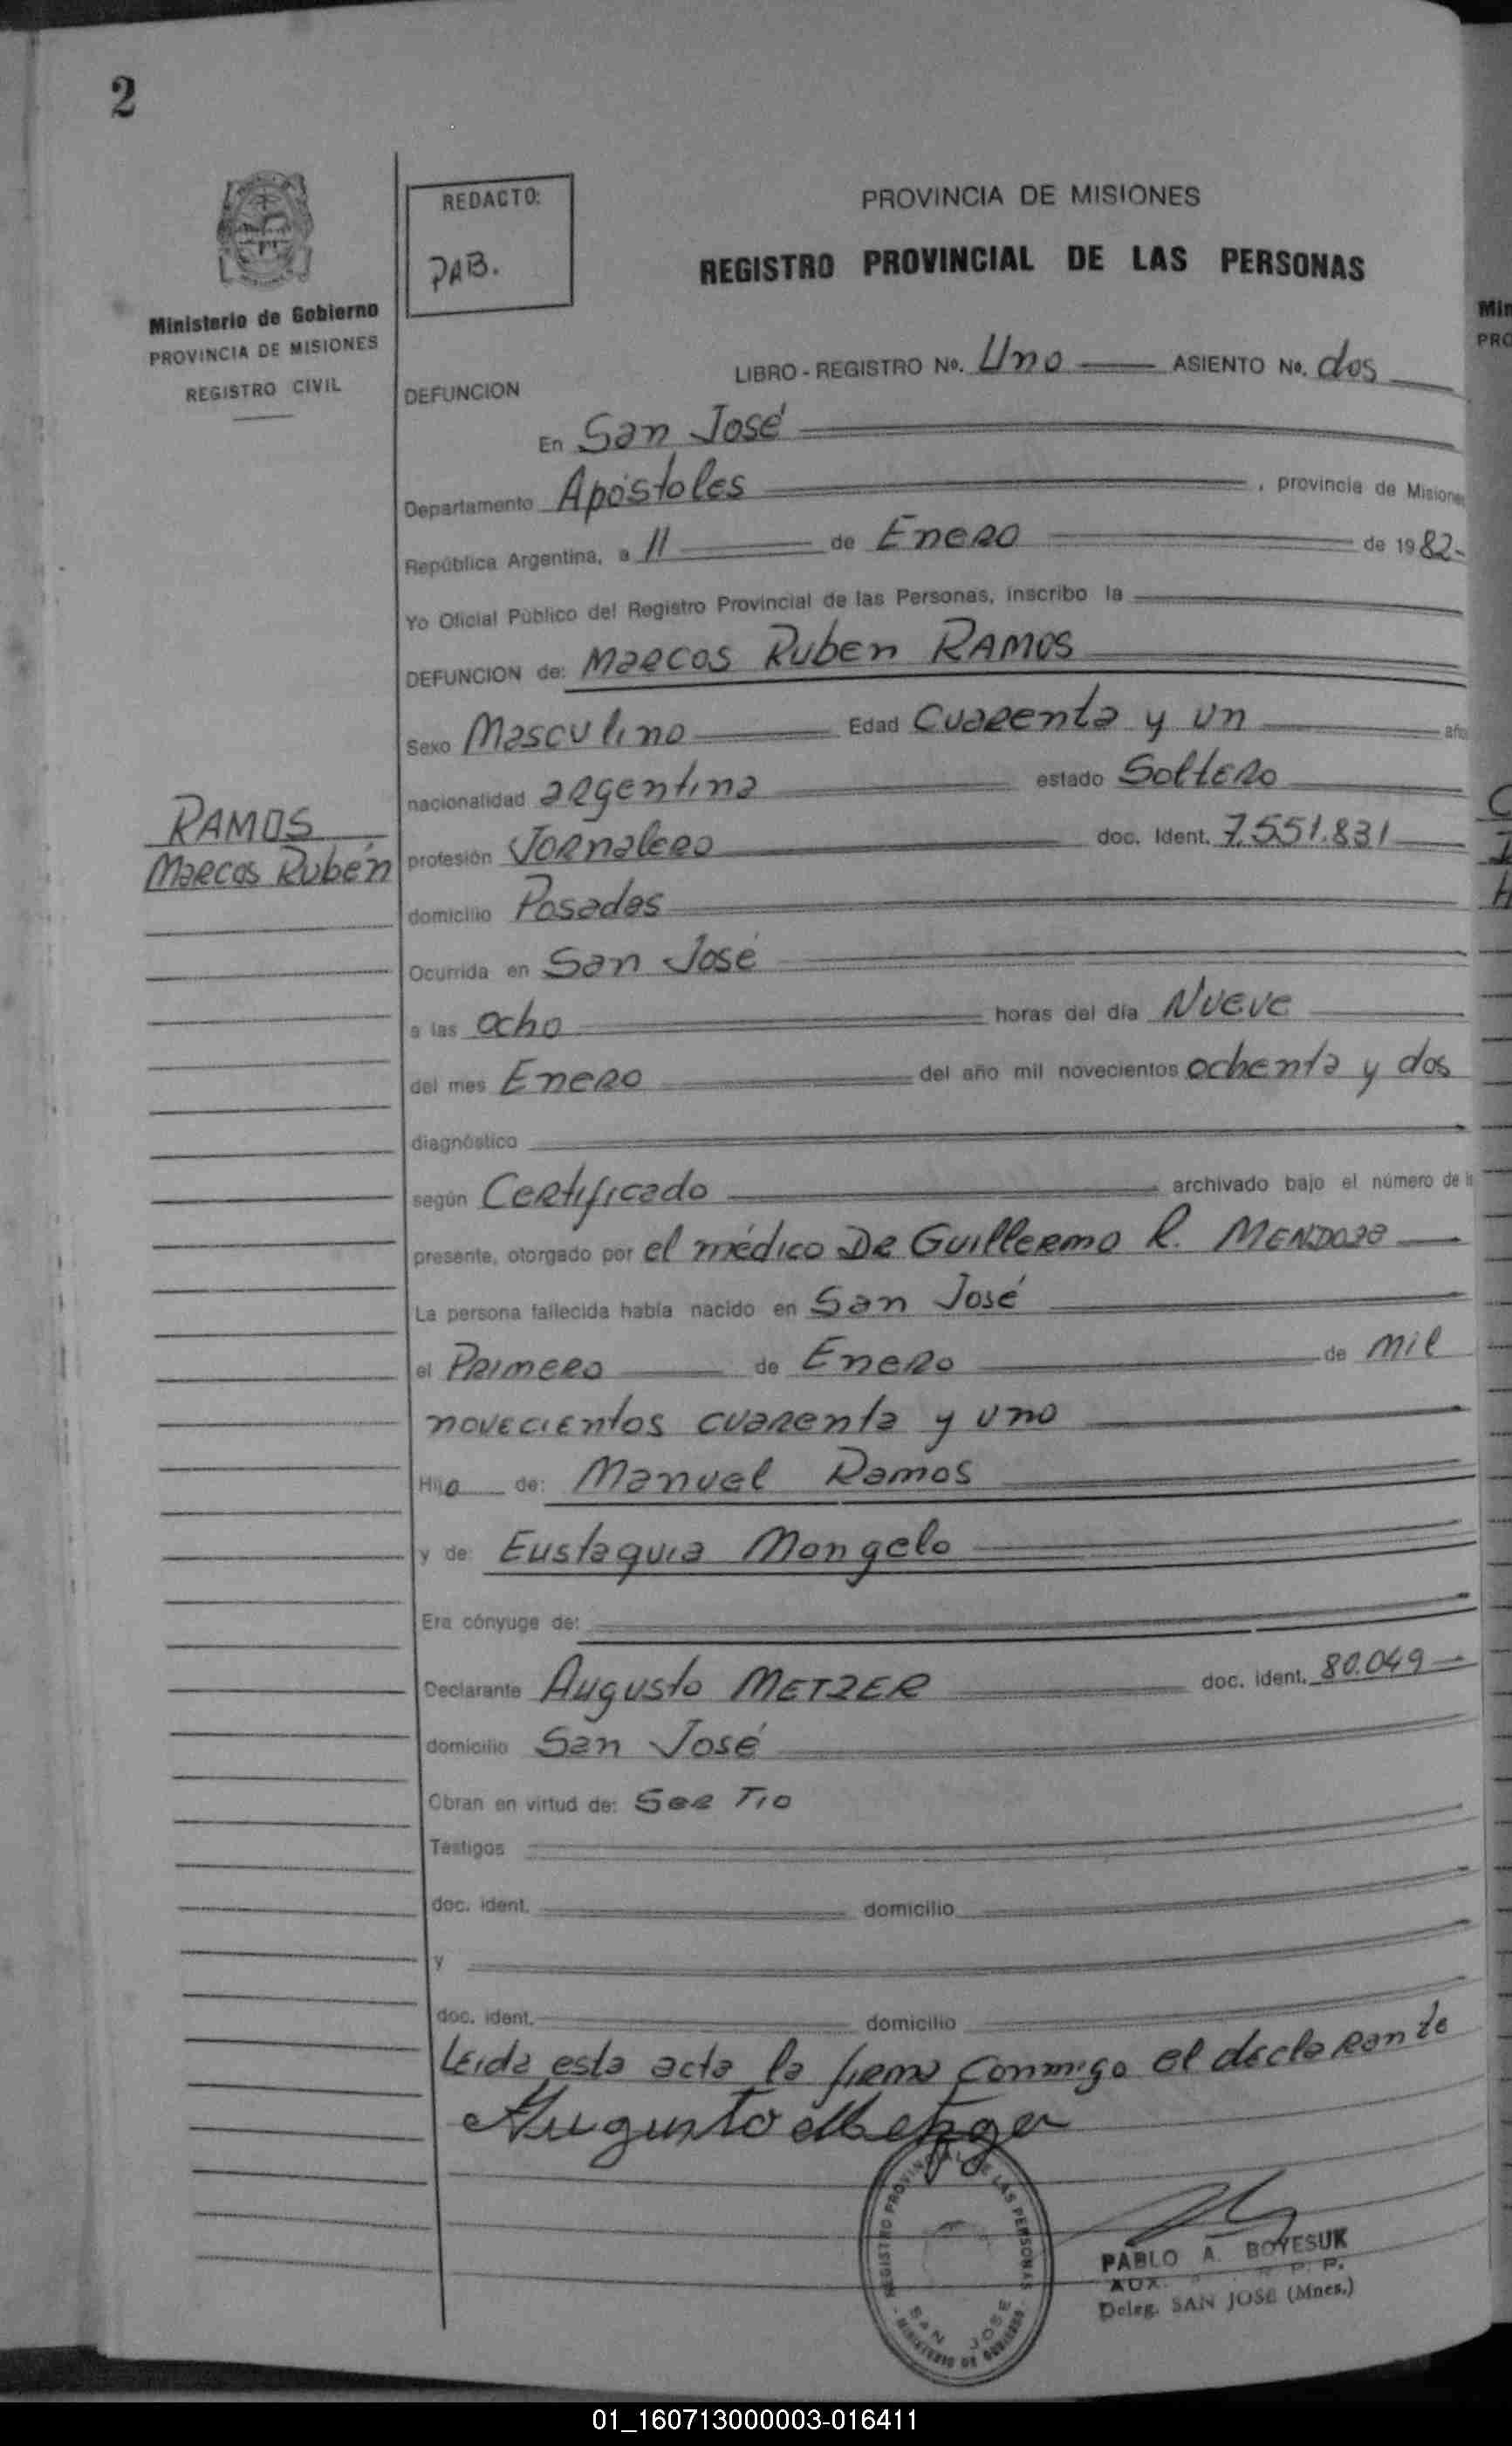 2
Ministerio de Gobierno
PROVINCIA DE MISIONES
REGISTRO CIVIL
REDACTO:
PAB.
PROVINCIA DE MISIONES
REGISTRO PROVINCIAL DE LAS PERSONAS
LIBRO - REGISTRO No. Uno ASIENTO No. dos
DEFUNCION
En San José
Departamento Apóstoles, provincia de Misiones
República Argentina, a 11 de Enero de 1982-
Yo Oficial Público del Registro Provincial de las Personas, inscribo la
DEFUNCION de: Marcos Ruben RAMOS
Sexo Masculino Edad Cuarenta y un año
nacionalidad argentina estado Soltero
RAMOS
Marcos Rubén
profesión Jornalero doc. Ident. 7.551.831
domicilio Posadas
Ocurrida en San José
a las ocho horas del día Nueve
del mes Enero del año mil novecientos ochenta y dos
diagnóstico
según Certificado archivado bajo el número de la
presente, otorgado por el médico DR Guillermo R. MENDOZA
La persona fallecida había nacido en San José
el Primero de Enero de mil
novecientos cuarenta y uno
Hijo de: Manuel Ramos
y de Eustaquia Mongelo
Era cónyuge de:
Declarante Augusto METZER doc. ident. 80.049
domicilio San José
Obran en virtud de: Ser Tio
Testigos
doc. ident. domicilio
y
doc. ident. domicilio
Leida esta acta la firma conmigo el declarante
Augusto Metzger
REGISTRO PROVINCIAL DE LAS PERSONAS
SAN JOSE
MINISTERIO DE GOBIERNO
PABLO A. BOYESUK
AUX. R. P. P.
Deleg. SAN JOSE (Mnes.)
Min
PRO
01_160713000003-016411